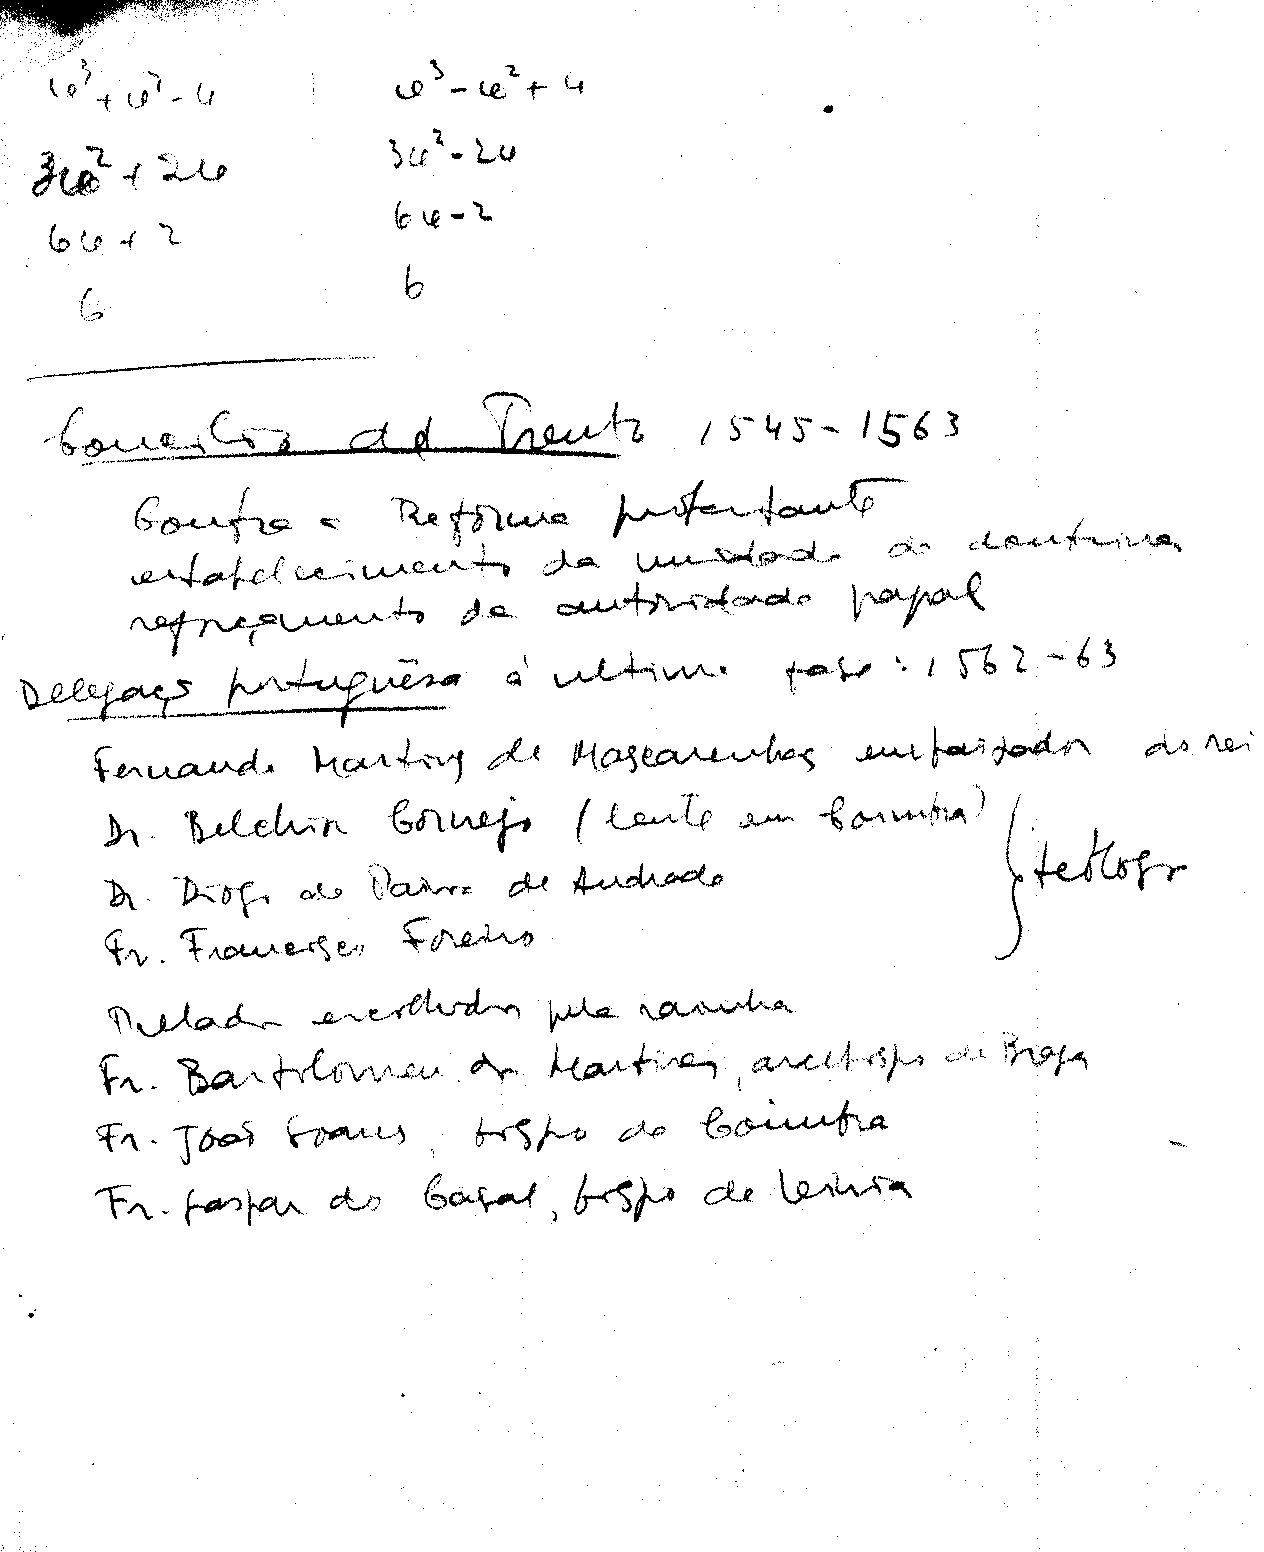 u³ + u² - 4    u³ - u² + 4
3u² + 2u    3u² - 2u
6u + 2    6u - 2
6    6
Concilio de Trento 1545-1563
Contra a Reforma protestante
estabelecimento da unidade da doutrina
reforçamento da autoridade papal
Delegação portuguêsa à ultima fase: 1562-63
Fernando Martins de Mascarenhas embaixador do rei
Dr. Belchior Cornejo (lente em Coimbra)
Dr. Diogo de Paiva de Andrade
Fr. Francisco Foreiro
teólogos
Prelados escolhidos pela rainha
Fr. Bartolomeu dos Martires, arcebispo de Braga
Fr. João Soares, bispo de Coimbra
Fr. Gaspar do Casal, bispo de Leiria